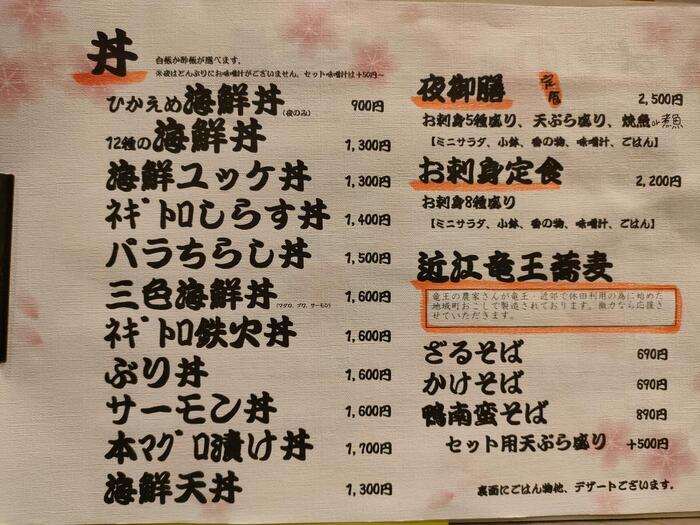 丼
白飯か酢飯が選べます。
※夜はどんぶりにお味噌汁がございません。セット味噌汁は+50円~
ひかえめ海鮮丼(夜のみ) 900円
12種の海鮮丼 1,300円
海鮮ユッケ丼 1,300円
ネギトロしらす丼 1,400円
バラちらし丼 1,500円
三色海鮮丼(マグロ、ブリ、サーモン) 1,600円
ネギトロ鉄火丼 1,600円
ぶり丼 1,600円
サーモン丼 1,600円
本マグロ漬け丼 1,700円
海鮮天丼 1,300円
夜御膳 2,500円
お刺身5種盛り、天ぷら盛り、焼魚or煮魚
【ミニサラダ、小鉢、香の物、味噌汁、ごはん】
お刺身定食 2,200円
お刺身8種盛り
【ミニサラダ、小鉢、香の物、味噌汁、ごはん】
近江竜王蕎麦
竜王の農家さんが竜王・近郊で休田利用の為に始めた
地域町おこしで製造されております。微力なら応援さ
せていただきます。
ざるそば 690円
かけそば 690円
鴨南蛮そば 890円
セット用天ぷら盛り +500円
裏面にごはん物他、デザートございます。